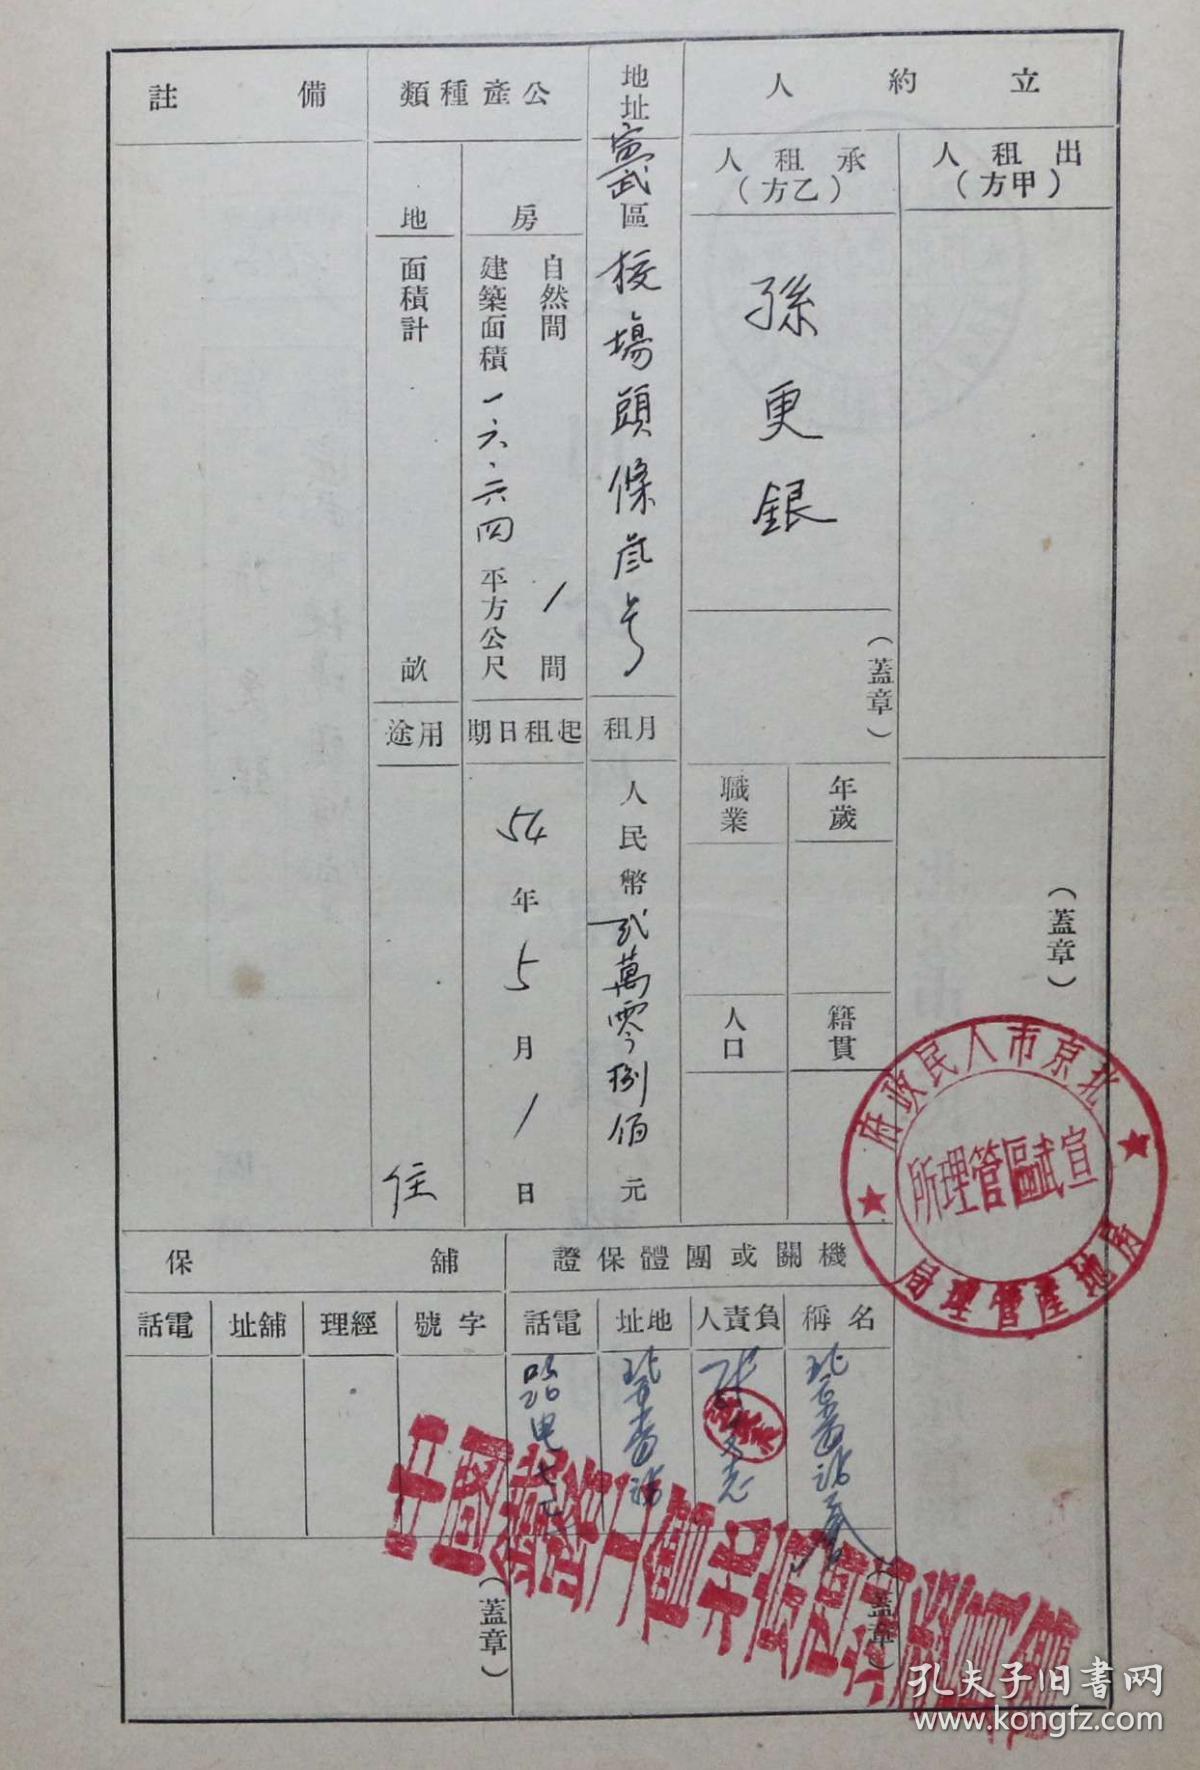 立約人
出租人
（甲方）
（蓋章）
承租人
（乙方）
孫更銀
（蓋章）
年歲
職業
籍貫
人口
地址
宣武區
校場頭條叁号
月租
人民幣貳萬零捌佰元
公產種類
房
自然間
1間
建築面積
一六、六四
平方公尺
起租日期
54年5月1日
地
面積計
畝
用途
住
備註
機關或團體保證
名稱
負責人
地址
電話
路电
（蓋章）
舖保
字號
經理
舖址
電話
（蓋章）
北京市人民政府
房地產管理局
宣武區管理所
孔夫子旧書网
www.kongfz.com